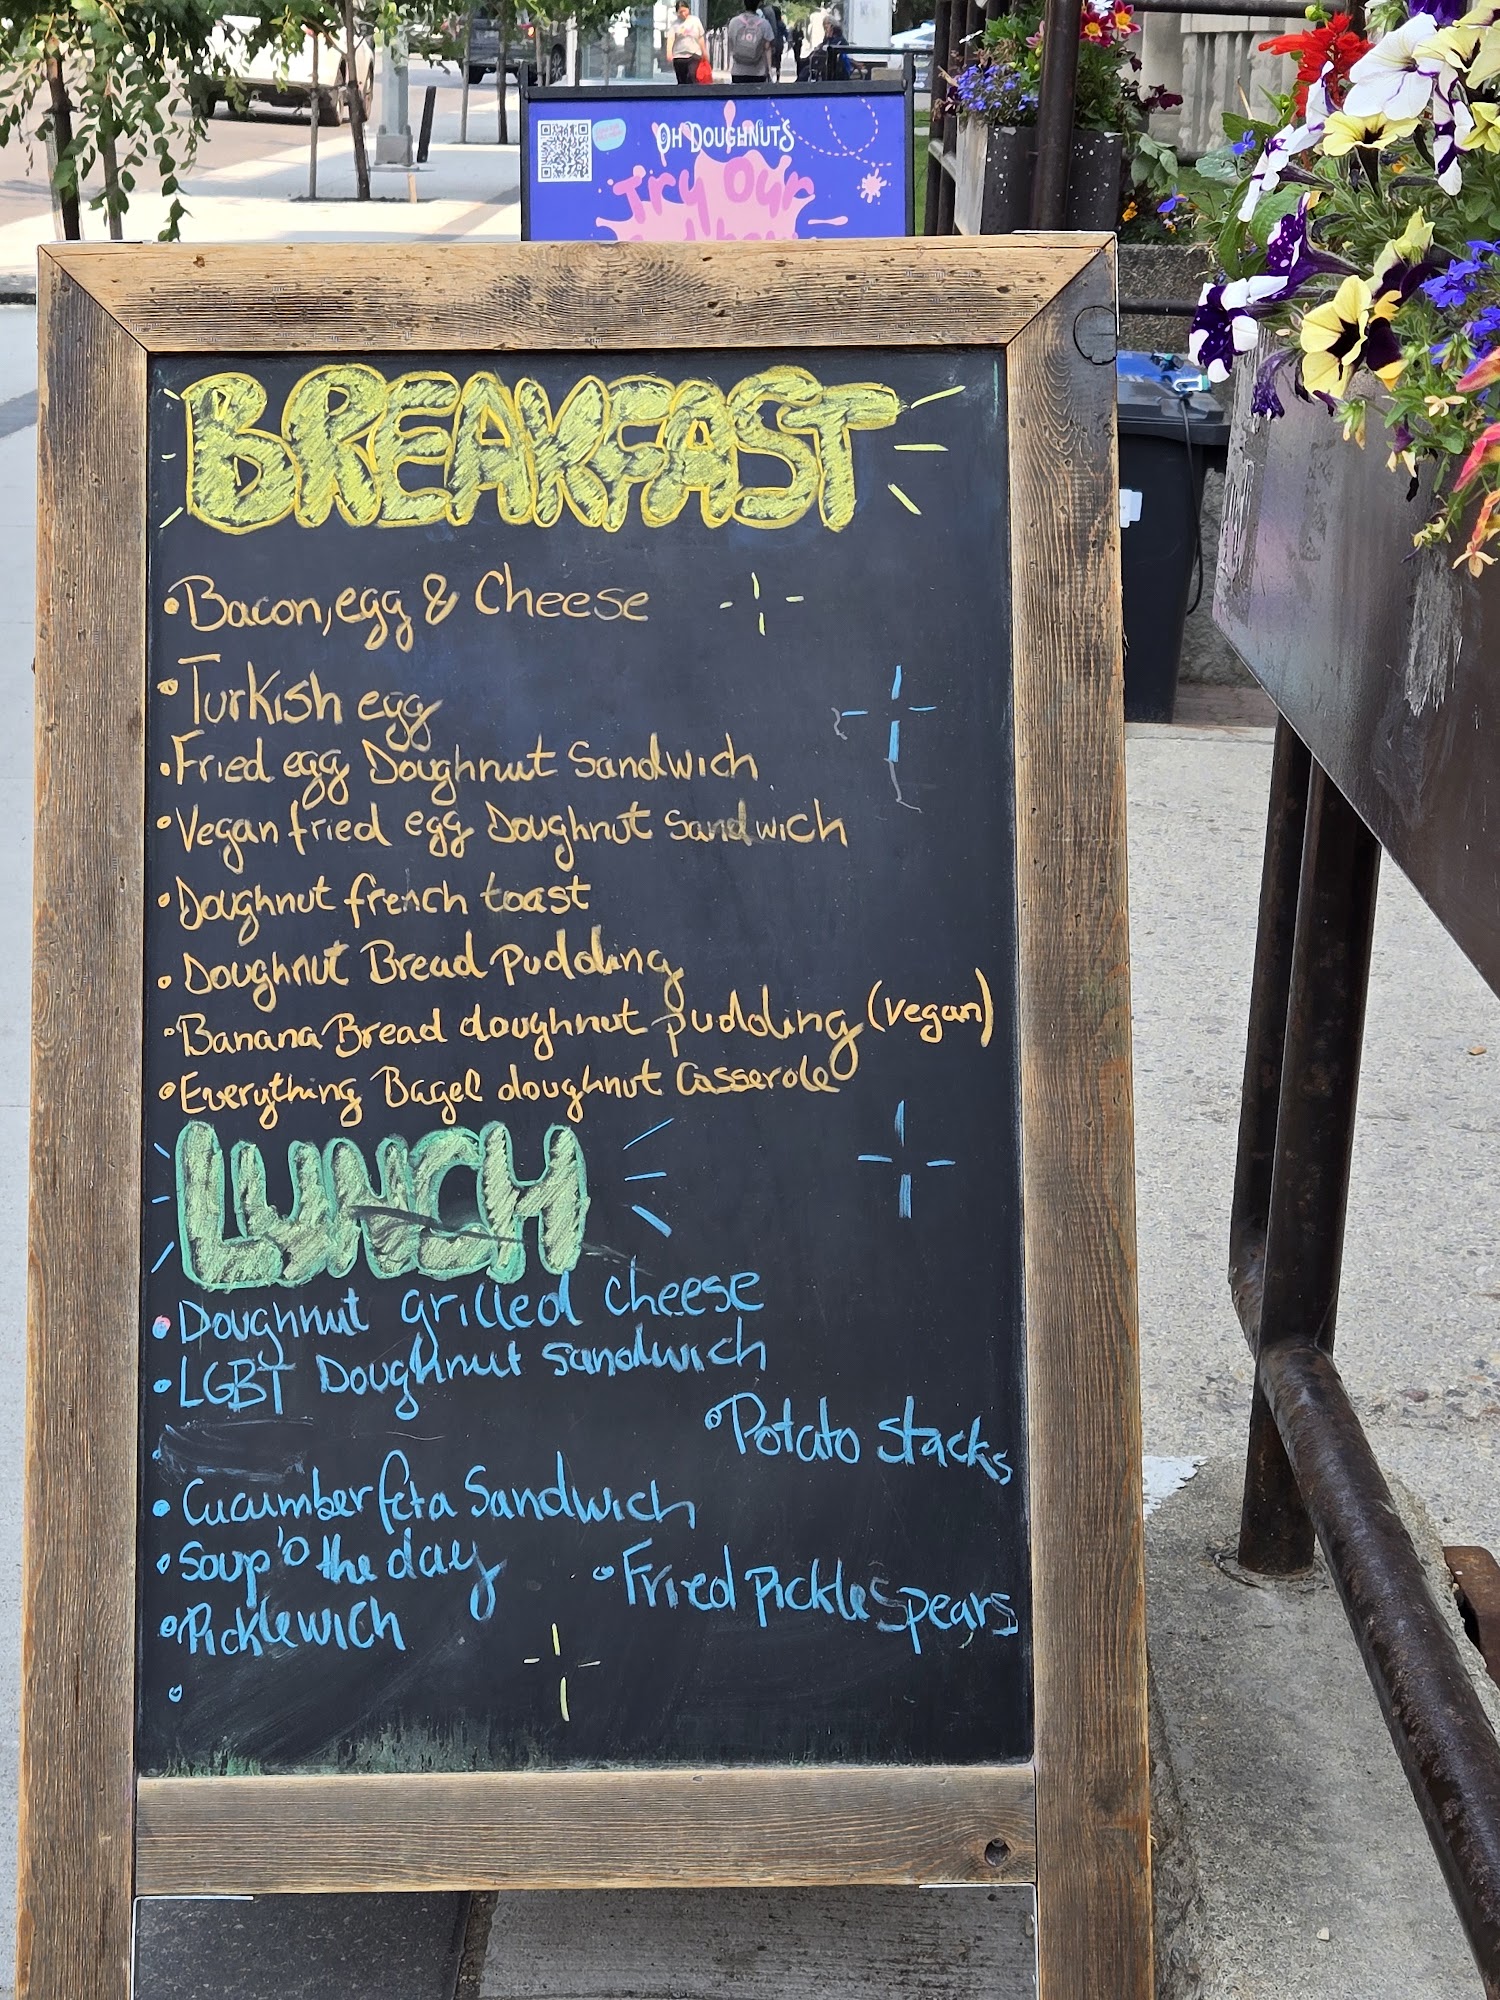 OH DOUGHNUTS
Try Our
BREAKFAST
• Bacon, egg & Cheese
• Turkish egg
• Fried egg Doughnut Sandwich
• Vegan fried egg Doughnut Sandwich
• Doughnut french toast
• Doughnut Bread pudding
• Banana Bread doughnut pudding (vegan)
• Everything Bagel doughnut Casserole
LUNCH
• Doughnut grilled cheese
• LGBT Doughnut sandwich
• Potato stacks
• Cucumber feta Sandwich
• Soup 'o the day
• Fried pickle spears
• Picklewich